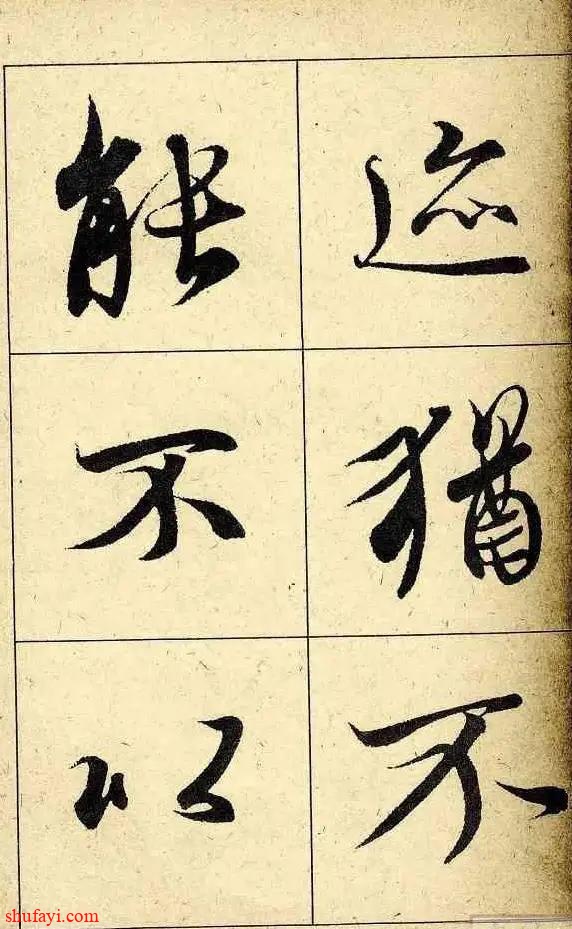 迹猶不
能不以
shufayi.com